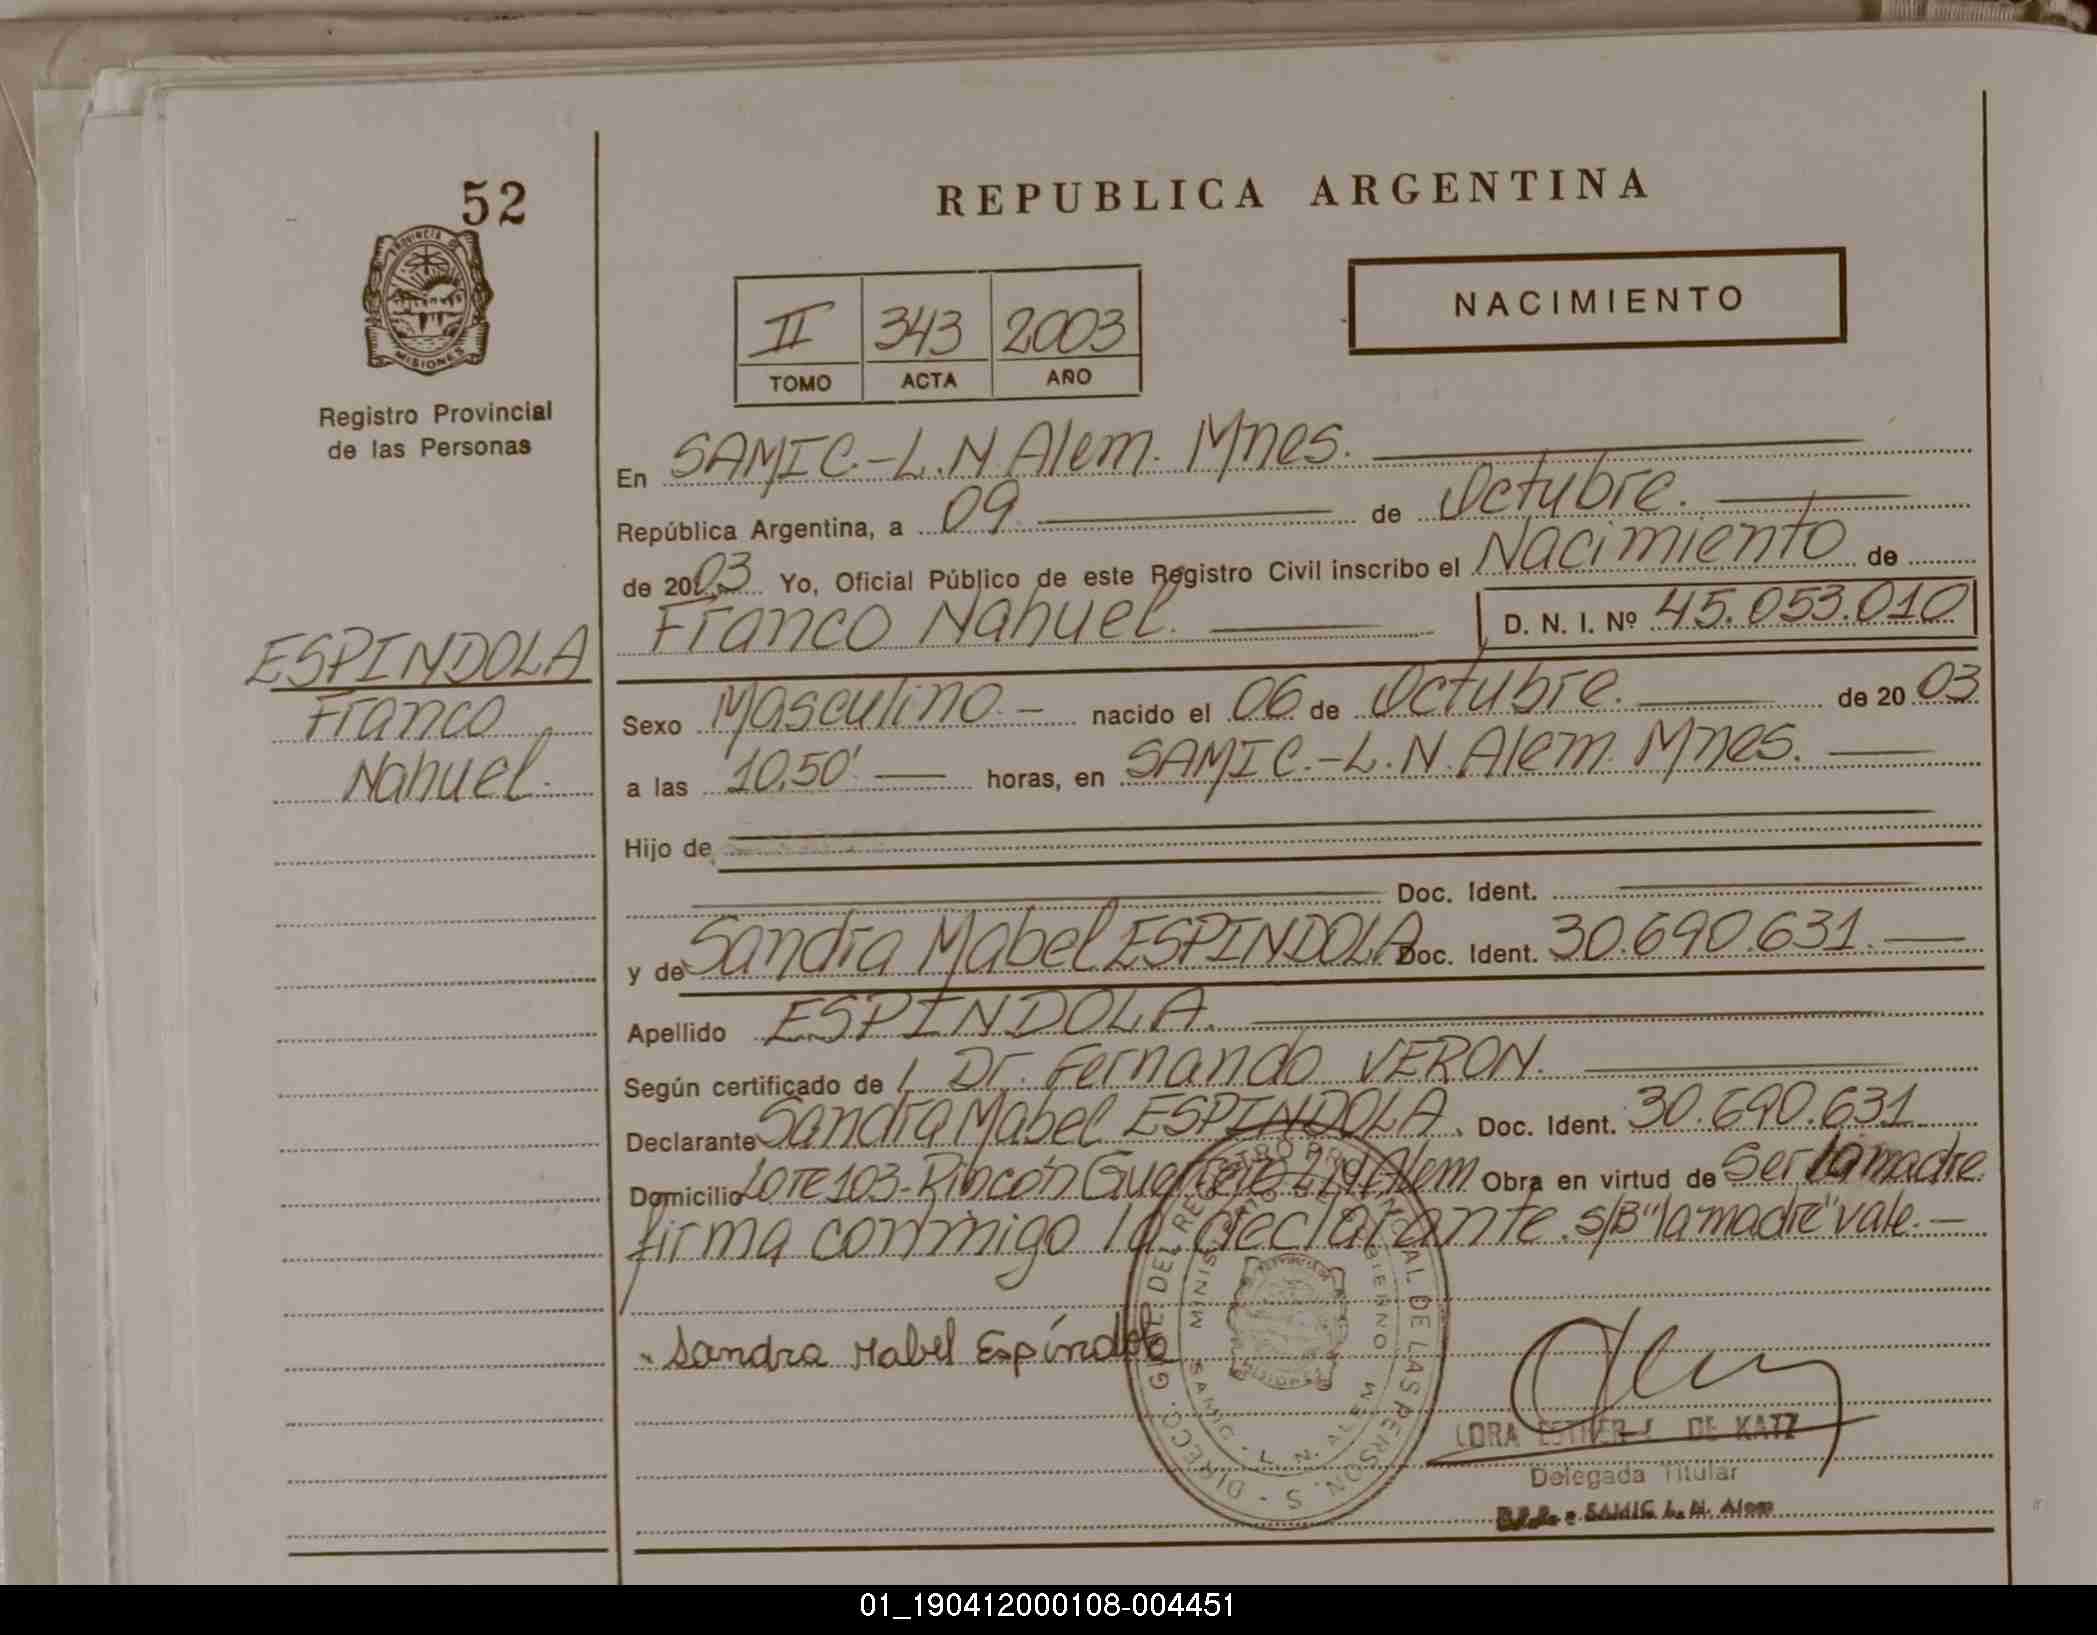 52
REPUBLICA ARGENTINA
PROVINCIA DE
MISIONES
Registro Provincial
de las Personas
NACIMIENTO
II 343 2003
TOMO ACTA AÑO
En SAMIC.-L.N.Alem. Mnes.
República Argentina, a 09 de Octubre.
de 2003 Yo, Oficial Público de este Registro Civil inscribo el Nacimiento de
Franco Nahuel. D. N. I. Nº 45.053.010
ESPINDOLA
Franco
Nahuel.
Sexo Masculino.- nacido el 06 de Octubre. de 20 03
a las 10,50' horas, en SAMIC.-L.N.Alem. Mnes.
Hijo de
Doc. Ident.
y de Sandra Mabel ESPINDOLA Doc. Ident. 30.690.631.
Apellido ESPINDOLA.
Según certificado de Dr. Fernando VERON.
Declarante Sandra Mabel ESPINDOLA. Doc. Ident. 30.690.631
Domicilio Lote 103-Rincón Guerrero Alem Obra en virtud de Ser la madre
firma conmigo la declarante. s/B "la madre" vale.-
Sandra Mabel Espíndola
DIRECC. GRAL. DEL REGISTRO PROVINCIAL DE LAS PERSONAS
MINISTERIO DE GOBIERNO
L. N. ALEM
MISIONES
ESTHER DE KATZ
Delegada Titular
SAMIC L. N. Alem
01_190412000108-004451